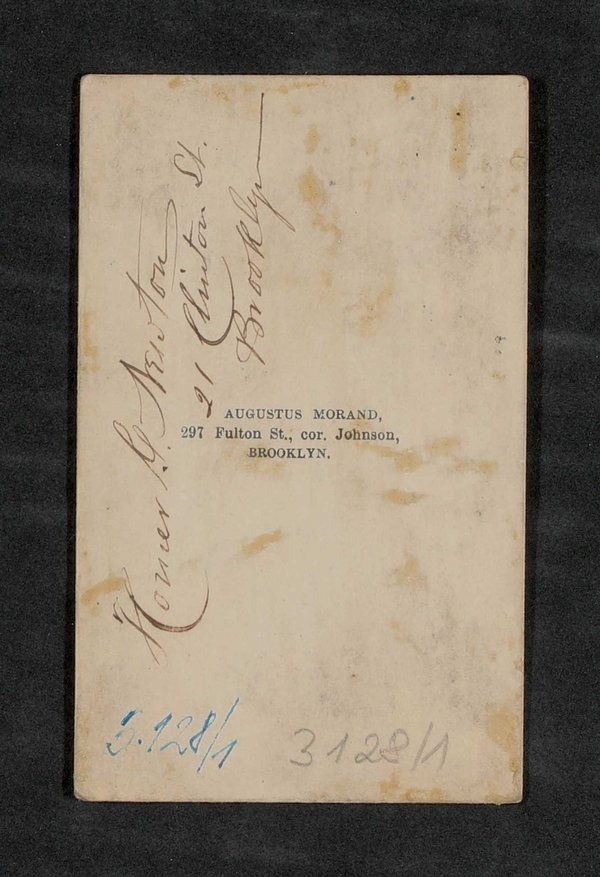 Homer G. Newton
21 Clinton St.
Brooklyn
AUGUSTUS MORAND,
297 Fulton St., cor. Johnson,
BROOKLYN.
3.128/1
3128/1